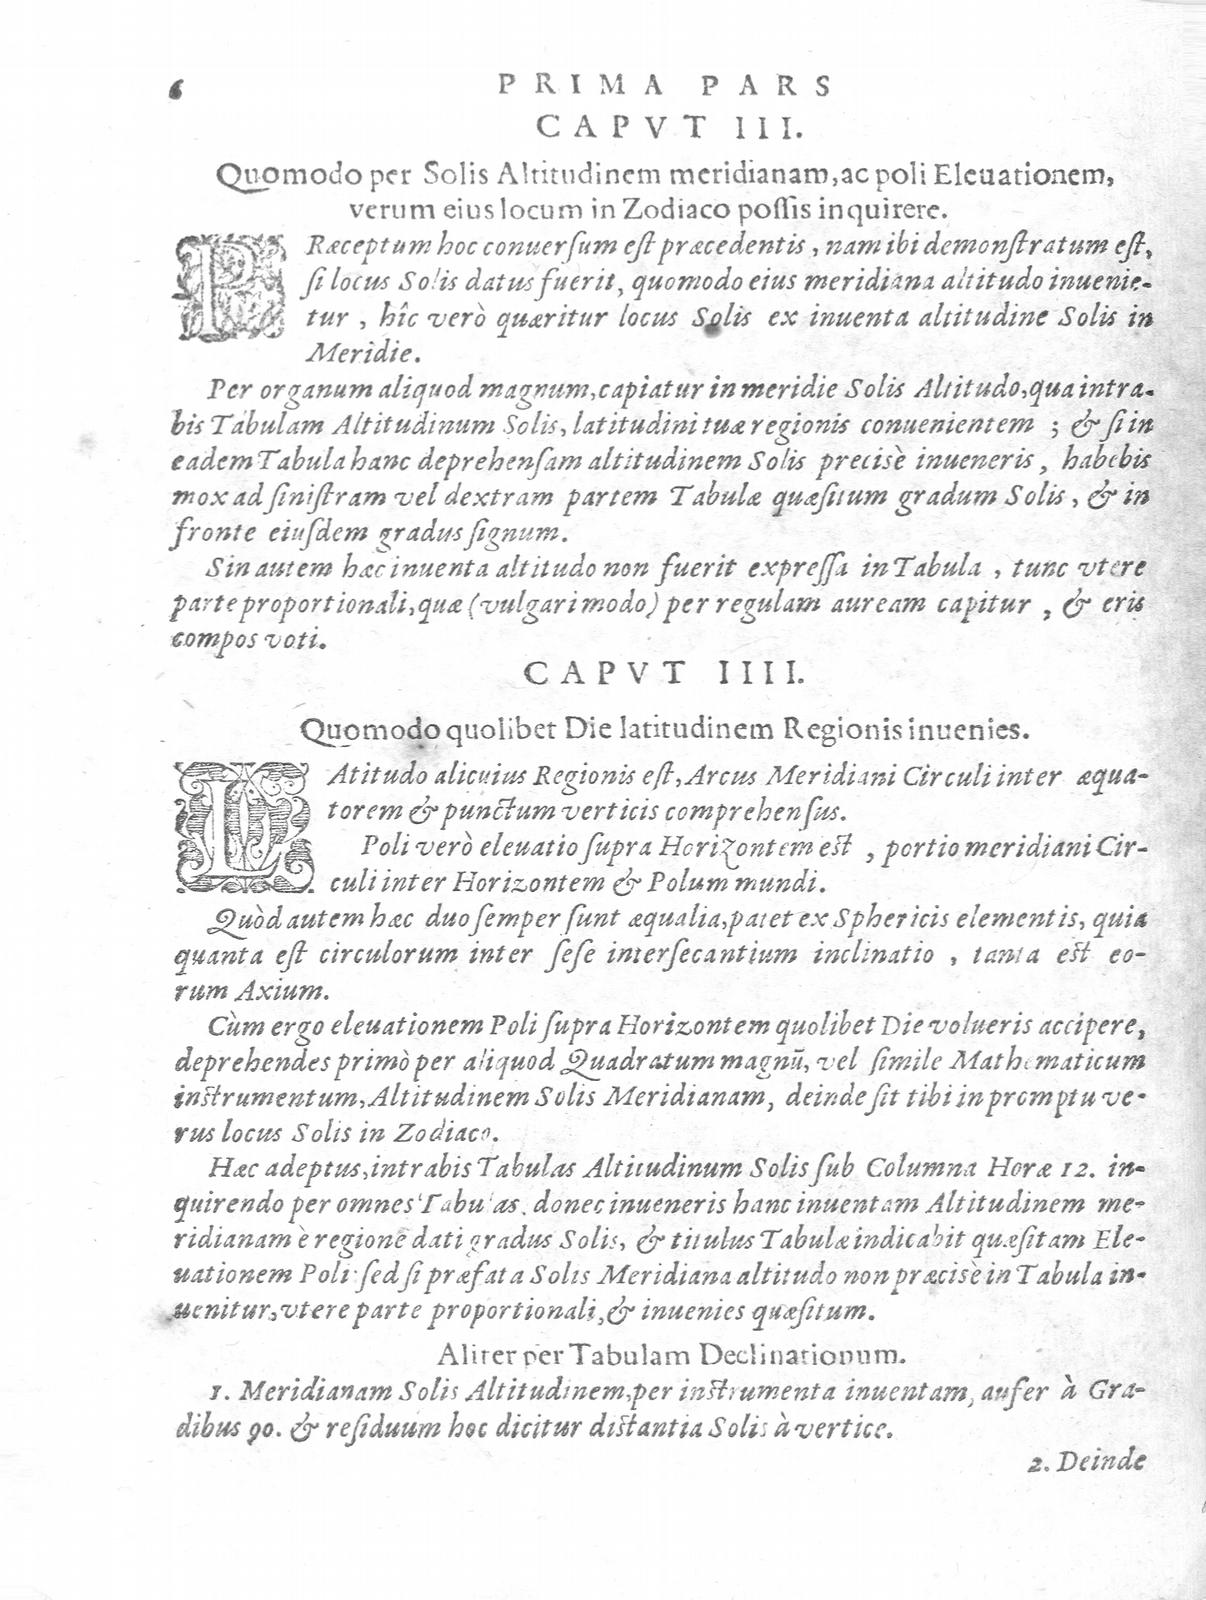 6 PRIMA PARS
CAPVT III.
Quomodo per Solis Altitudinem meridianam, ac poli Eleuationem,
verum eius locum in Zodiaco possis inquirere.
PRæceptum hoc conuersum est præcedentis, nam ibi demonstratum est,
si locus Solis datus fuerit, quomodo eius meridiana altitudo inuenie-
tur, hîc verò quæritur locus Solis ex inuenta altitudine Solis in
Meridie.
Per organum aliquod magnum, capiatur in meridie Solis Altitudo, qua intra-
bis Tabulam Altitudinum Solis, latitudini tuæ regionis conuenientem; & si in
eadem Tabula hanc deprehensam altitudinem Solis precisè inueneris, habebis
mox ad sinistram vel dextram partem Tabulæ quæsitum gradum Solis, & in
fronte eiusdem gradus signum.
Sin autem hæc inuenta altitudo non fuerit expressa in Tabula, tunc vtere
parte proportionali, quæ (vulgari modo) per regulam auream capitur, & eris
compos voti.
CAPVT IIII.
Quomodo quolibet Die latitudinem Regionis inuenies.
LAtitudo alicuius Regionis est, Arcus Meridiani Circuli inter æqua-
torem & punctum verticis comprehensus.
Poli verò eleuatio supra Horizontem est, portio meridiani Cir-
culi inter Horizontem & Polum mundi.
Quòd autem hæc duo semper sunt æqualia, patet ex Sphericis elementis, quia
quanta est circulorum inter sese intersecantium inclinatio, tanta est eo-
rum Axium.
Cùm ergo eleuationem Poli supra Horizontem quolibet Die volueris accipere,
deprehendes primò per aliquod Quadratum magnū, vel simile Mathematicum
instrumentum, Altitudinem Solis Meridianam, deinde sit tibi in promptu ve-
rus locus Solis in Zodiaco.
Hæc adeptus, intrabis Tabulas Altitudinum Solis sub Columna Horæ 12. in-
quirendo per omnes Tabulas, donec inueneris hanc inuentam Altitudinem me-
ridianam è regione dati gradus Solis, & titulus Tabulæ indicabit quæsitam Ele-
uationem Poli: sed si præfata Solis Meridiana altitudo non præcisè in Tabula in-
uenitur, vtere parte proportionali, & inuenies quæsitum.
Aliter per Tabulam Declinationum.
1. Meridianam Solis Altitudinem, per instrumenta inuentam, aufer à Gra-
dibus 90. & residuum hoc dicitur distantia Solis à vertice.
2. Deinde